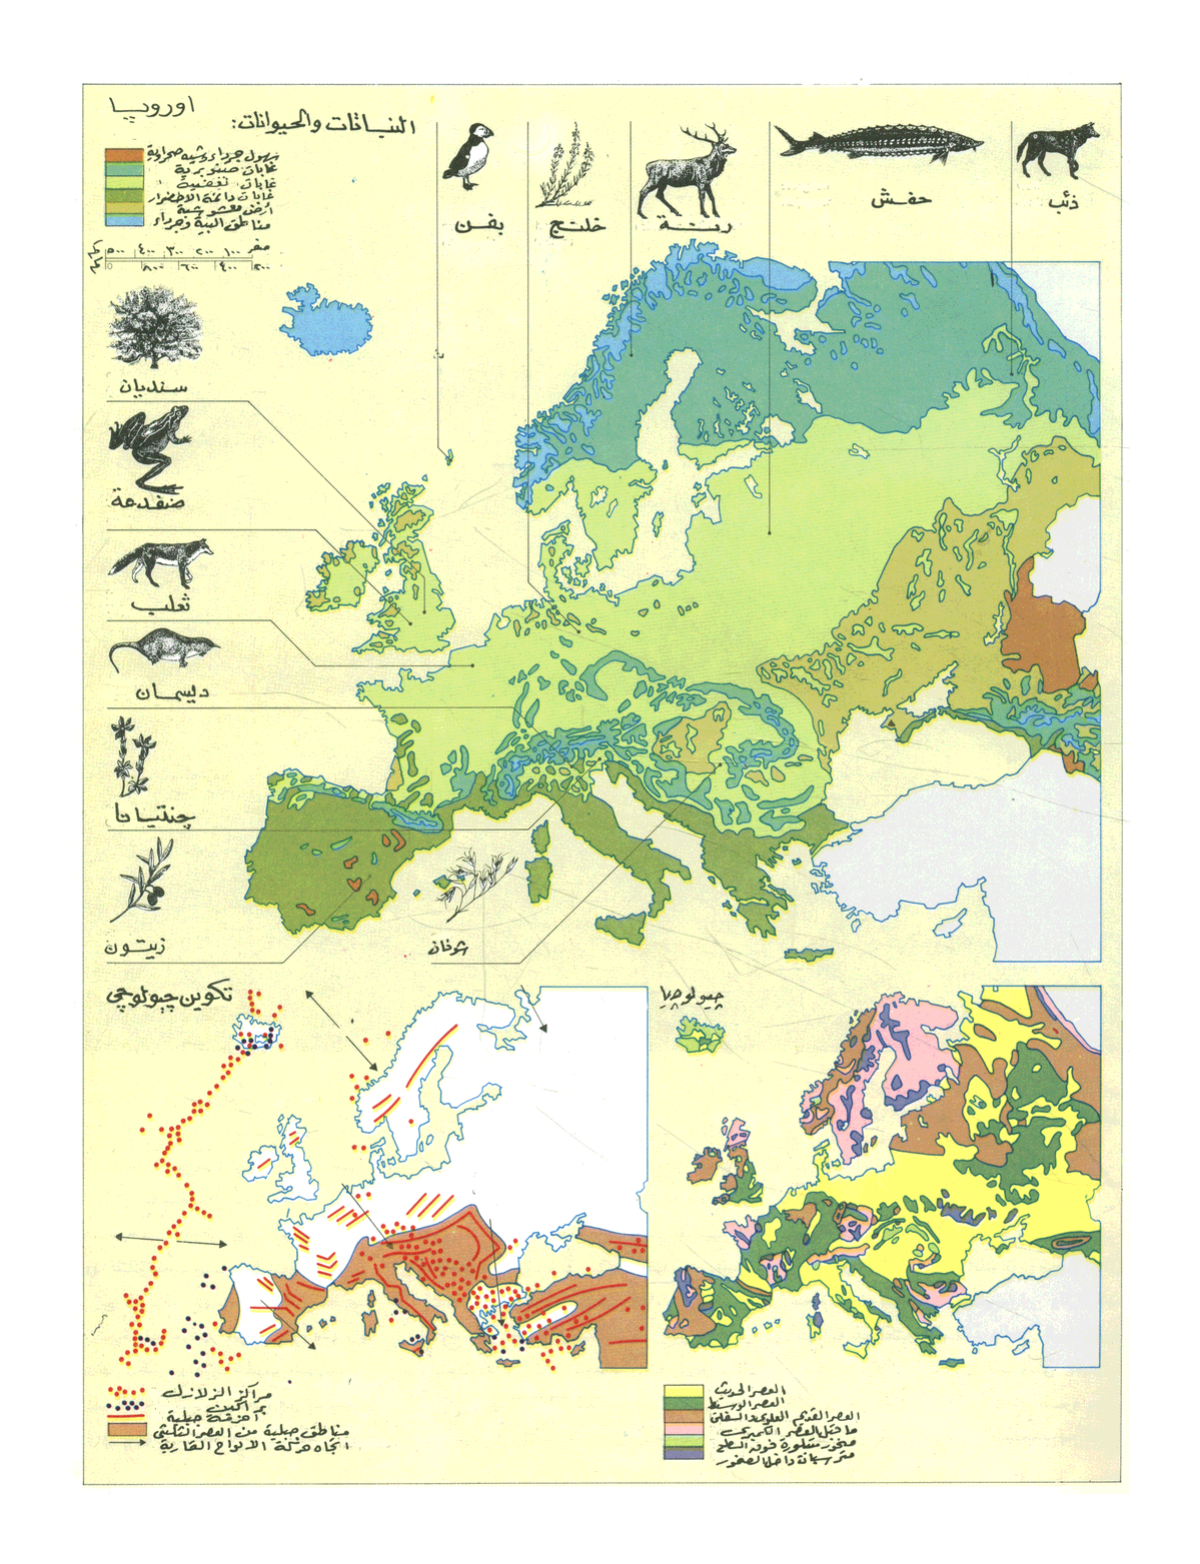 اوروپا
النباتات والحيوانات:
سهول جرداء وشبه صحراوية
غابات صنوبرية
غابات نفضية
غابات دائمة الاخضرار
أرض معشوشبة
مناطق البية وجرداء
صفر ١٠٠ ٢٠٠ ٣٠٠ ٤٠٠ ٥٠٠
٢٠٠ ٤٠٠ ٦٠٠ ٨٠٠
بفن
خلنج
رنة
حفش
ذئب
سنديان
ضفدعة
ثعلب
ديسمان
چنتيانا
زيتون
شوفان
تكوين چيولوچي
چيولوچيا
مراكز الزلازل
براكين
احزمة جبلية
مناطق جبلية من العصر الثلثي
اتجاه حركة الالواح القارية
العصر الحديث
العصر الوسيط
العصر القديم العلوي والسفلي
ما قبل العصر الكمبري
صخور متبلورة فوق السطح
داخل الصخور